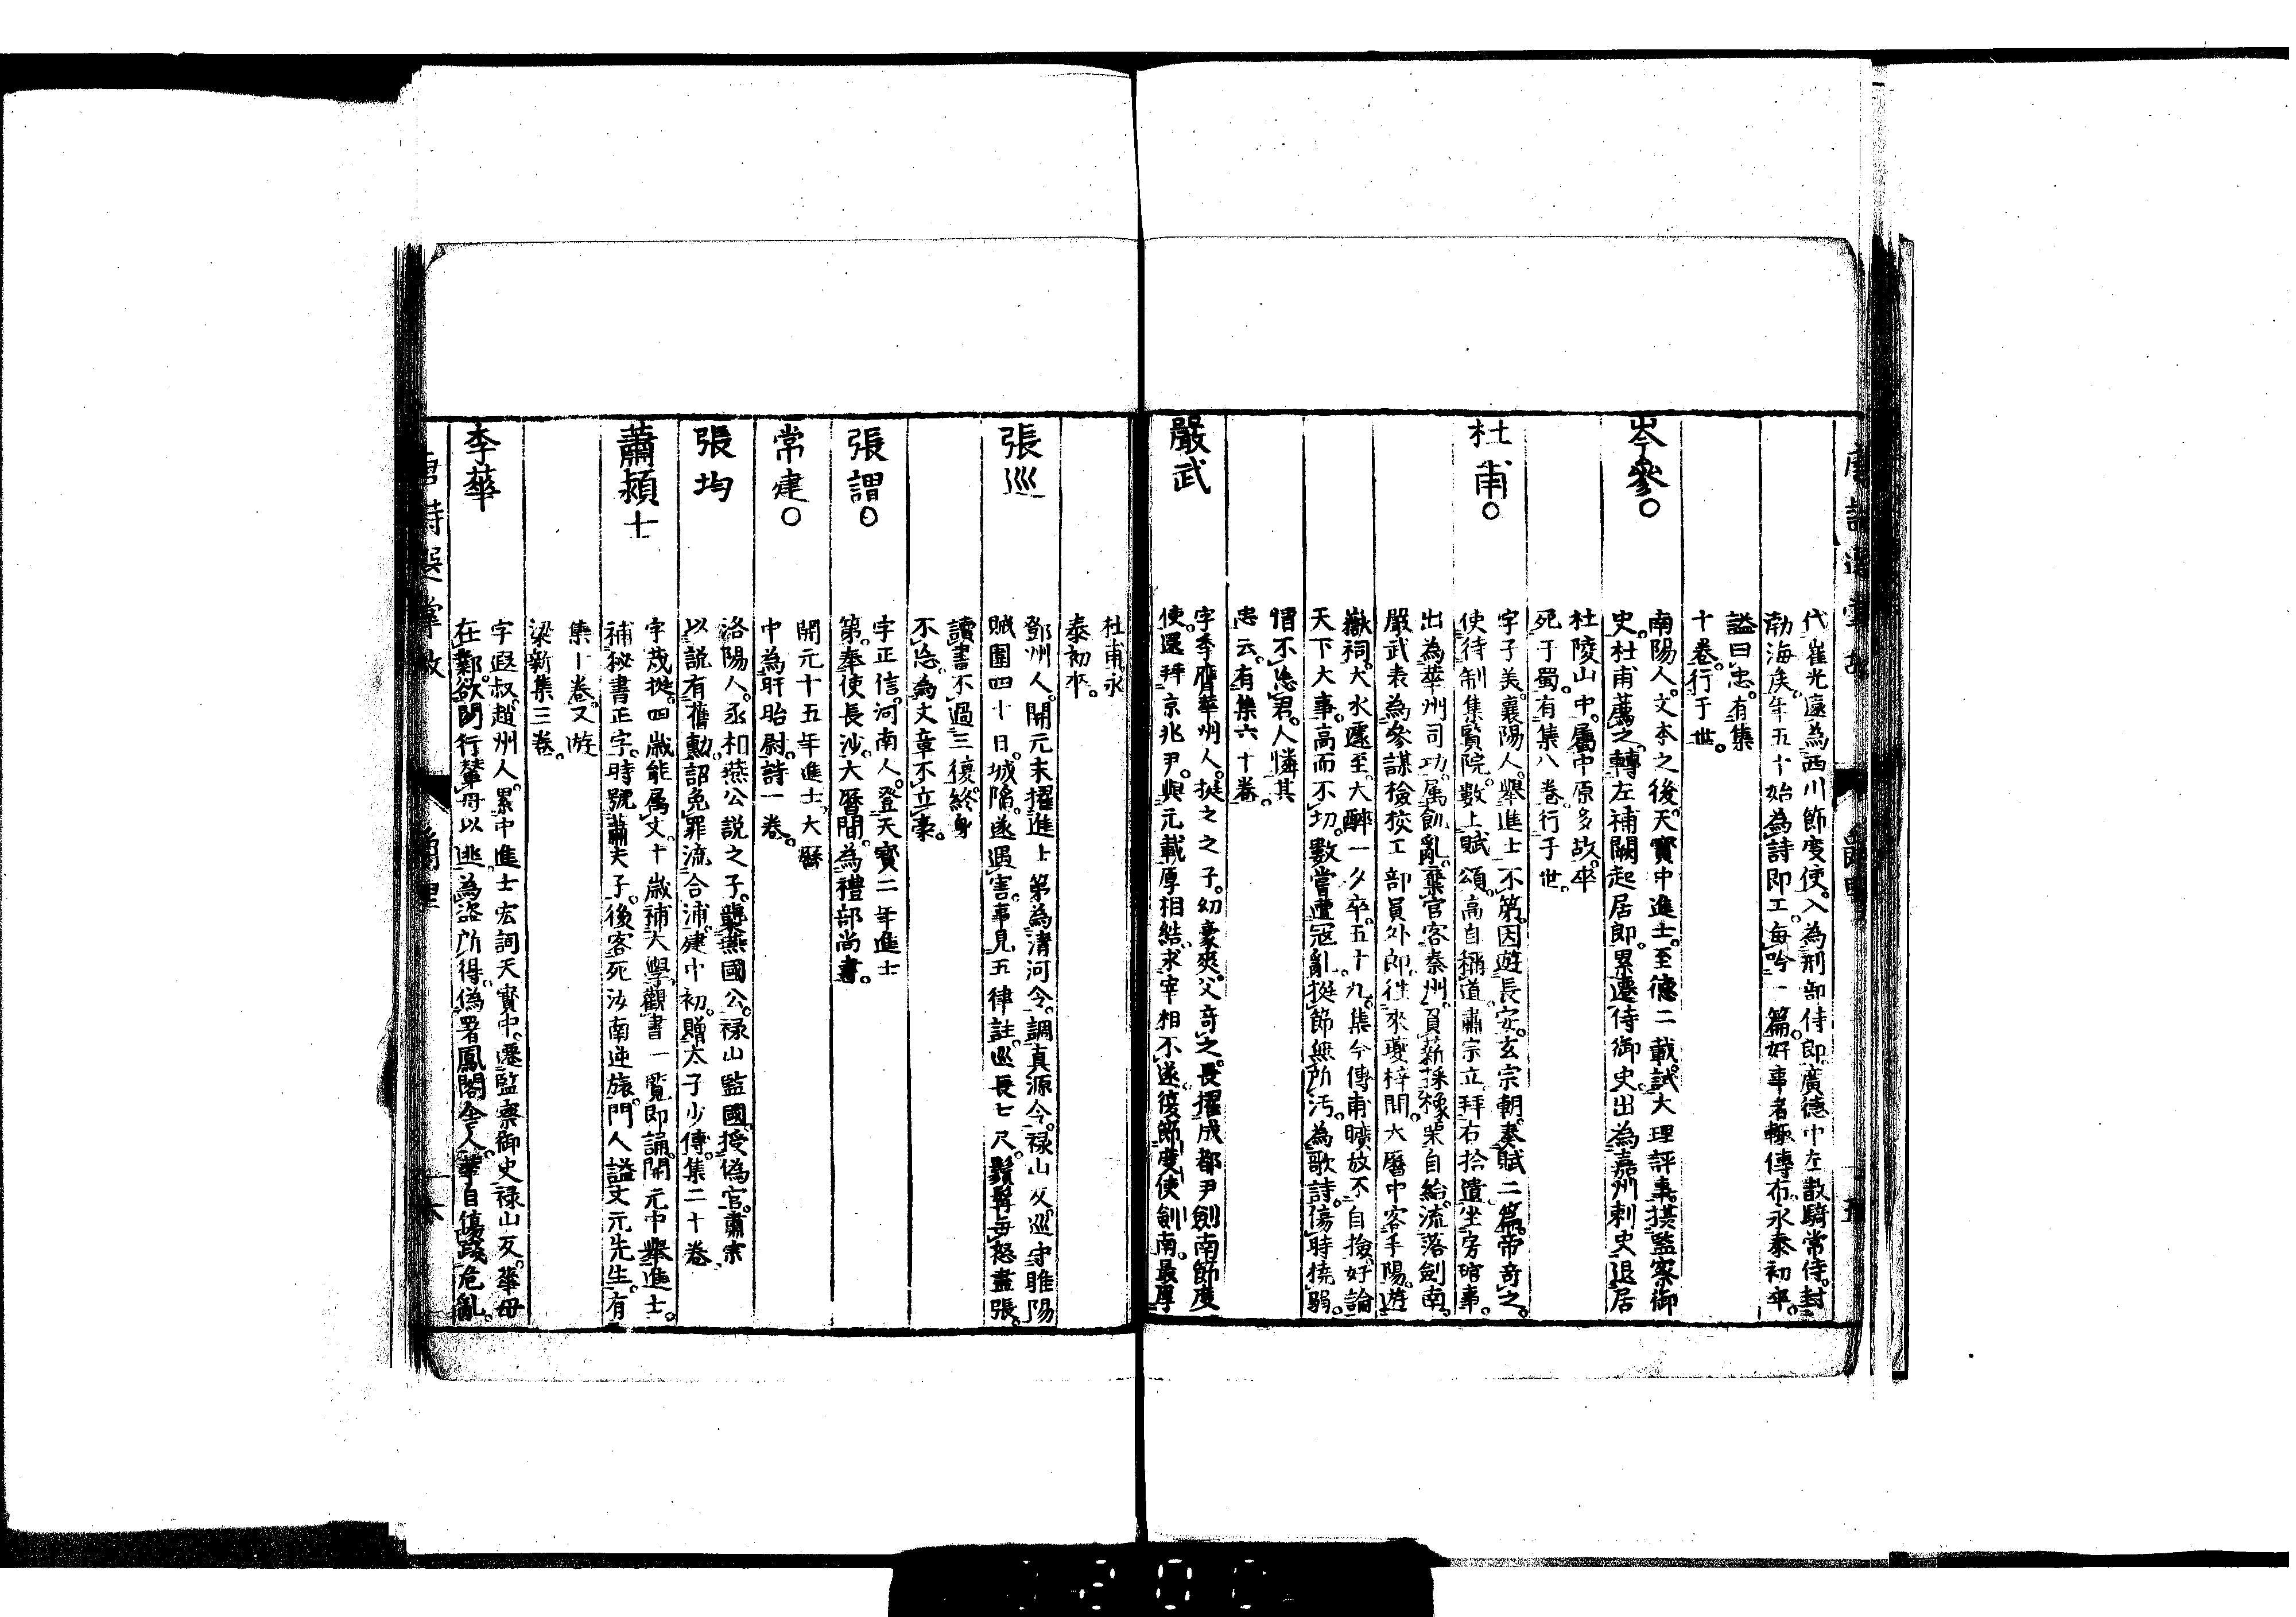 代崔光遠為西川節度使入為刑部侍郎廣德中左散騎常侍封
渤海侯年五十始為詩即工每吟一篇好事者輙傳布永泰初卒
謚曰忠有集
十卷行于世
岑參○
南陽人文本之後天寶中進士至德二載試大理評事攝監察御
史杜甫薦之轉左補闕起居郎累遷侍御史出為嘉州刺史退居
杜陵山中屬中原多故卒
死于蜀有集八卷行于世
杜甫○
字子美襄陽人舉進士不第因遊長安玄宗朝奏賦二篇帝奇之
使待制集賢院數上賦頌高自稱道肅宗立拜右拾遺坐房琯事
出為華州司功属飢亂棄官客秦州負薪採橡栗自給流落劍南
嚴武表為參謀檢校工部員外郎往來夔梓間大曆中客耒陽遊
嶽祠大水遽至大醉一夕卒五十九集今傳甫曠放不自撿好論
天下大事高而不切數嘗遭寇亂挺節無所汚為歌詩傷時撓弱
情不忘君人憐其
忠云有集六十卷
嚴武
字季鷹華州人挺之之子幼豪爽父奇之長擢成都尹劍南節度
使還拜京兆尹與元載厚相結求宰相不遂復節度使劍南最厚
杜甫永
泰初卒
張巡
鄧州人開元末擢進士第為清河令調真源令禄山反巡守睢陽
賊圍四十日城陷遂遇害事見五律註巡長七尺鬚髯每怒盡張
讀書不過三復終身
不忘為文章不立稾
張謂○
字正信河南人登天寳二年進士
第奉使長沙大曆間為禮部尚書
常建○
開元十五年進士大曆
中為盱眙尉詩一卷
張均
洛陽人丞相燕公説之子襲燕國公禄山監國授偽官肅宗
以説有舊勳詔免罪流合浦建中初贈太子少傅集二十卷
蕭頴士
字茂挺四歲能属文十歲補大學觀書一覧即誦開元中舉進士
補秘書正字時號蕭夫子後客死汝南逆旅門人謚文元先生有
集十卷又游
梁新集三卷
李華
字遐叔趙州人累中進士宏詞天寳中遷監察御史禄山反華母
在鄴欲間行輦母以逃為盗所得偽署鳳閣舍人華自傷踐危亂